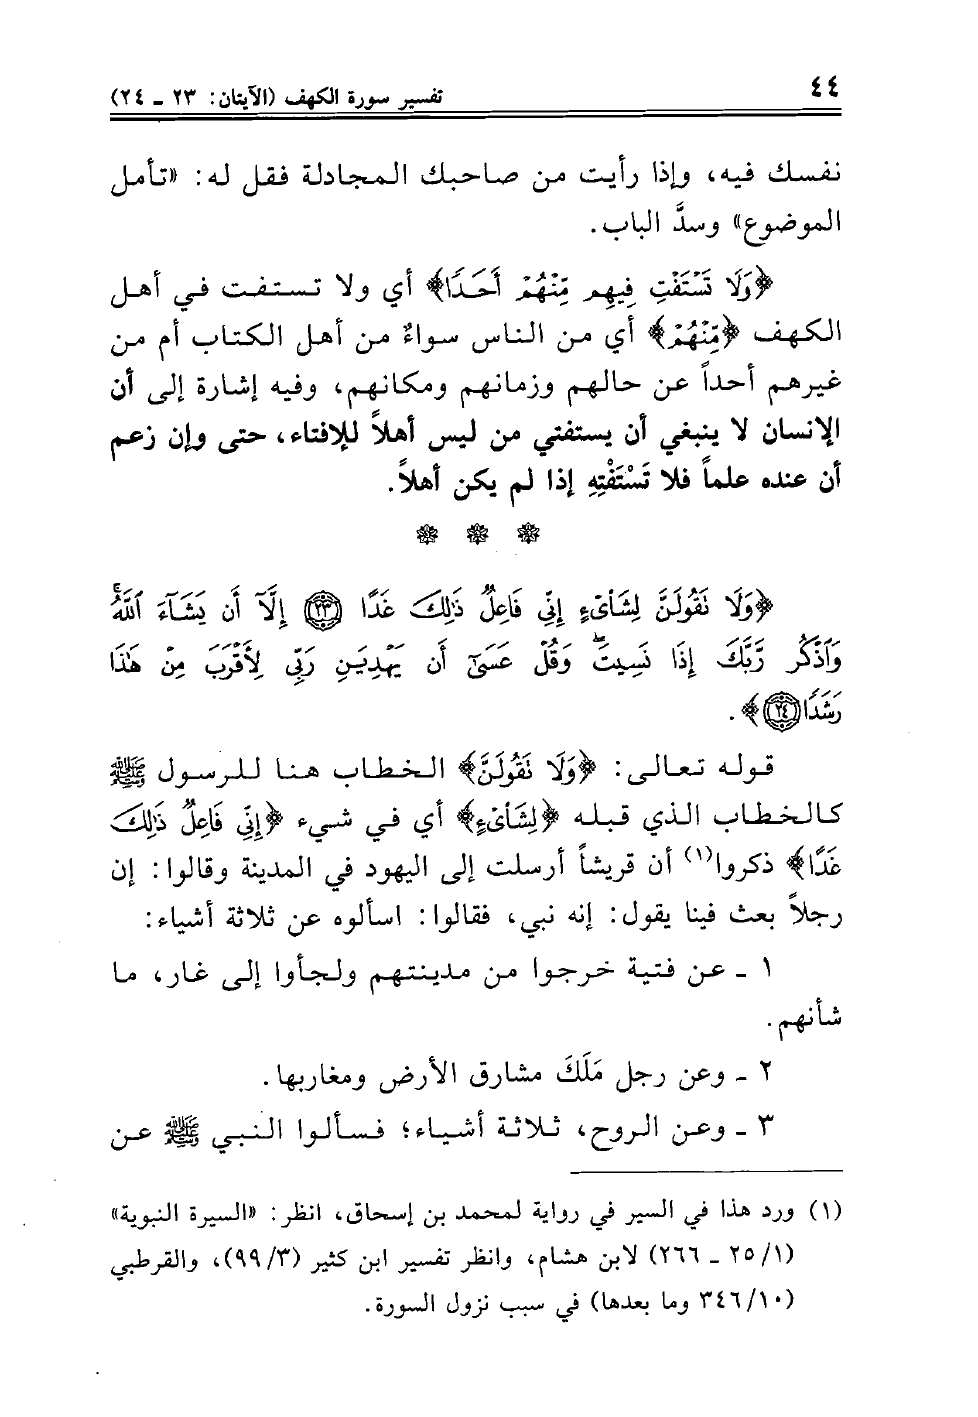 ٤٤ تفسير سورة الكهف (الآيتان: ٢٣ ـ ٢٤)
نفسك فيه، وإذا رأيت من صاحبك المجادلة فقل له: «تأمل
الموضوع» وسدَّ الباب.
﴿وَلَا تَسْتَفْتِ فِيهِم مِّنْهُمْ أَحَدًا﴾ أي ولا تستفت في أهل
الكهف ﴿مِّنْهُمْ﴾ أي من الناس سواءٌ من أهل الكتاب أم من
غيرهم أحداً عن حالهم وزمانهم ومكانهم، وفيه إشارة إلى أن
الإنسان لا ينبغي أن يستفتي من ليس أهلاً للإفتاء، حتى وإن زعم
أن عنده علماً فلا تَسْتَفْتِهِ إذا لم يكن أهلاً.
﴿وَلَا تَقُولَنَّ لِشَا۟ىْءٍ إِنِّى فَاعِلٌ ذَٰلِكَ غَدًا ٢٣ إِلَّآ أَن يَشَآءَ ٱللَّهُ ۚ
وَٱذْكُر رَّبَّكَ إِذَا نَسِيتَ وَقُلْ عَسَىٰٓ أَن يَهْدِيَنِ رَبِّى لِأَقْرَبَ مِنْ هَٰذَا
رَشَدًا ٢٤﴾.
قوله تعالى: ﴿وَلَا تَقُولَنَّ﴾ الخطاب هنا للرسول ﷺ
كالخطاب الذي قبله ﴿لِشَا۟ىْءٍ﴾ أي في شيء ﴿إِنِّى فَاعِلٌ ذَٰلِكَ
غَدًا﴾ ذكروا(١) أن قريشاً أرسلت إلى اليهود في المدينة وقالوا: إن
رجلاً بعث فينا يقول: إنه نبي، فقالوا: اسألوه عن ثلاثة أشياء:
١ ـ عن فتية خرجوا من مدينتهم ولجأوا إلى غار، ما
شأنهم.
٢ ـ وعن رجل مَلَكَ مشارق الأرض ومغاربها.
٣ ـ وعن الروح، ثلاثة أشياء؛ فسألوا النبي ﷺ عن
(١) ورد هذا في السير في رواية لمحمد بن إسحاق، انظر: «السيرة النبوية»
(٢٥/١ ـ ٢٦٦) لابن هشام، وانظر تفسير ابن كثير (٩٩/٣)، والقرطبي
(٣٤٦/١٠ وما بعدها) في سبب نزول السورة.